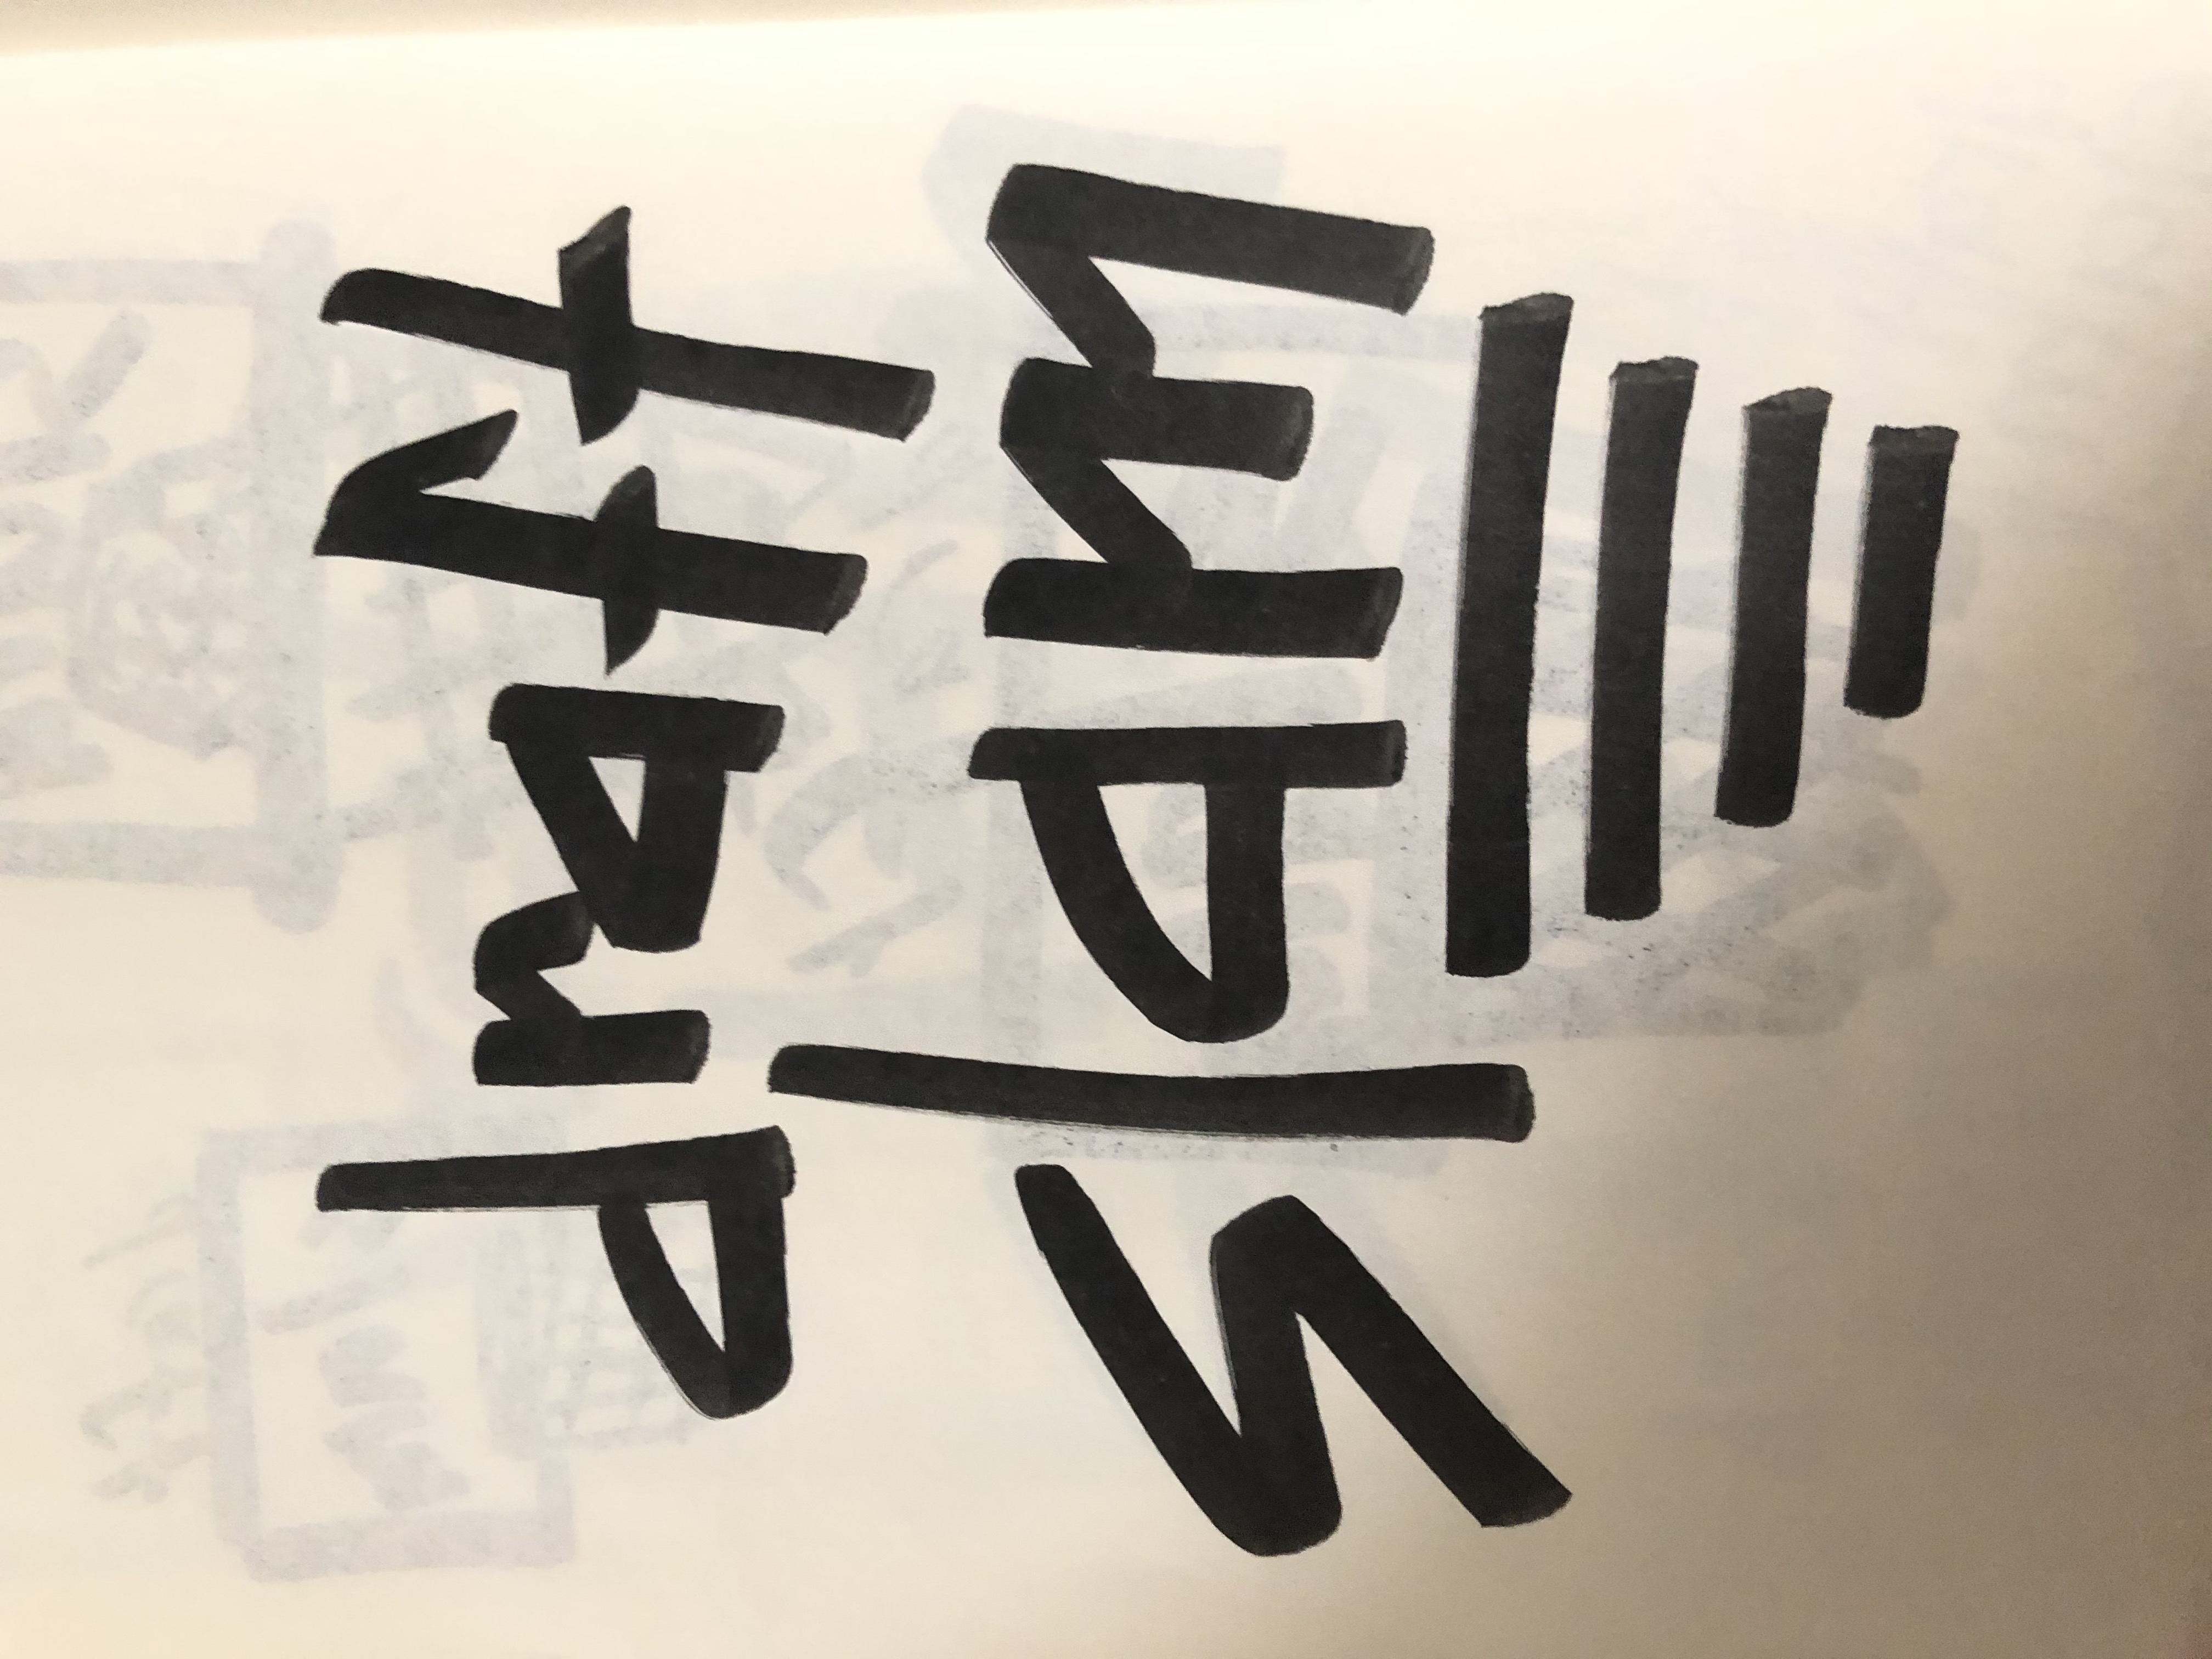 draft
slam